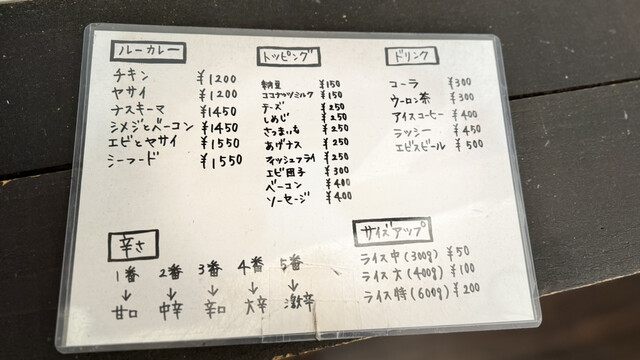 ルーカレー
チキン ¥1200
ヤサイ ¥1200
ナスキーマ ¥1450
シメジとベーコン ¥1450
エビとヤサイ ¥1550
シーフード ¥1550
トッピング
納豆 ¥150
ココナッツミルク ¥150
チーズ ¥250
しめじ ¥250
さつまいも ¥250
あげナス ¥250
フィッシュフライ ¥250
エビ団子 ¥300
ベーコン ¥400
ソーセージ ¥400
ドリンク
コーラ ¥300
ウーロン茶 ¥300
アイスコーヒー ¥400
ラッシー ¥450
エビスビール ¥500
辛さ
1番 2番 3番 4番 5番
↓ ↓ ↓ ↓ ↓
甘口 中辛 辛口 大辛 激辛
サイズアップ
ライス中(300g) ¥50
ライス大(400g) ¥100
ライス特(600g) ¥200